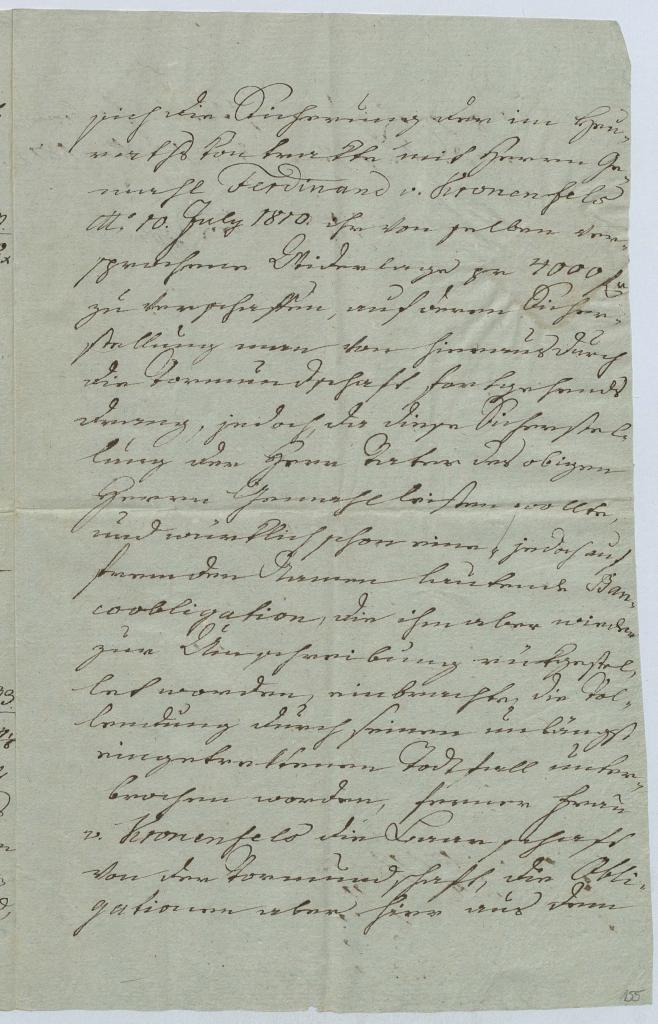 sich die Sicherung der im Heu-
rathskontrakte mit Herrn Ge-
mahl Ferdinand v. Kronenfels
10. July 1810. ihr von selben ver-
sprochene Widerlage pr 4000 fr
zu verschaffen, auf deren Sicher-
stellung man von hieraus durch
die Vormundschaft fortgehends
drang, jedoch, da diese Sicherstel-
lung der Herr Vater des obigen
Herrn Gemahl leisten wollte,
und würklich schon eine, jedoch auf
fremden Namen lautende Ban-
coobligation, die ihm aber wieder
zur Umschreibung rückgestel-
let worden, einbrachte, die Vol-
lendung durch seinen unlängst
eingetrettenen Todtfall unter-
brochen worden, ferner Frau
v. Kronenfels die Baarschaft
von der Vormundschaft, die Obli-
gationen aber hier aus dem
155